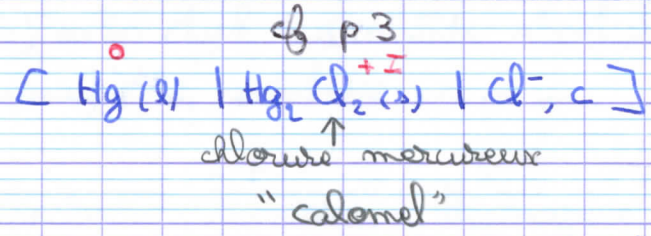 cf p 3
0 + I
[ Hg (l) | Hg2 Cl2 (s) | Cl-, c ]
↑
chlorure mercureux
" calomel "